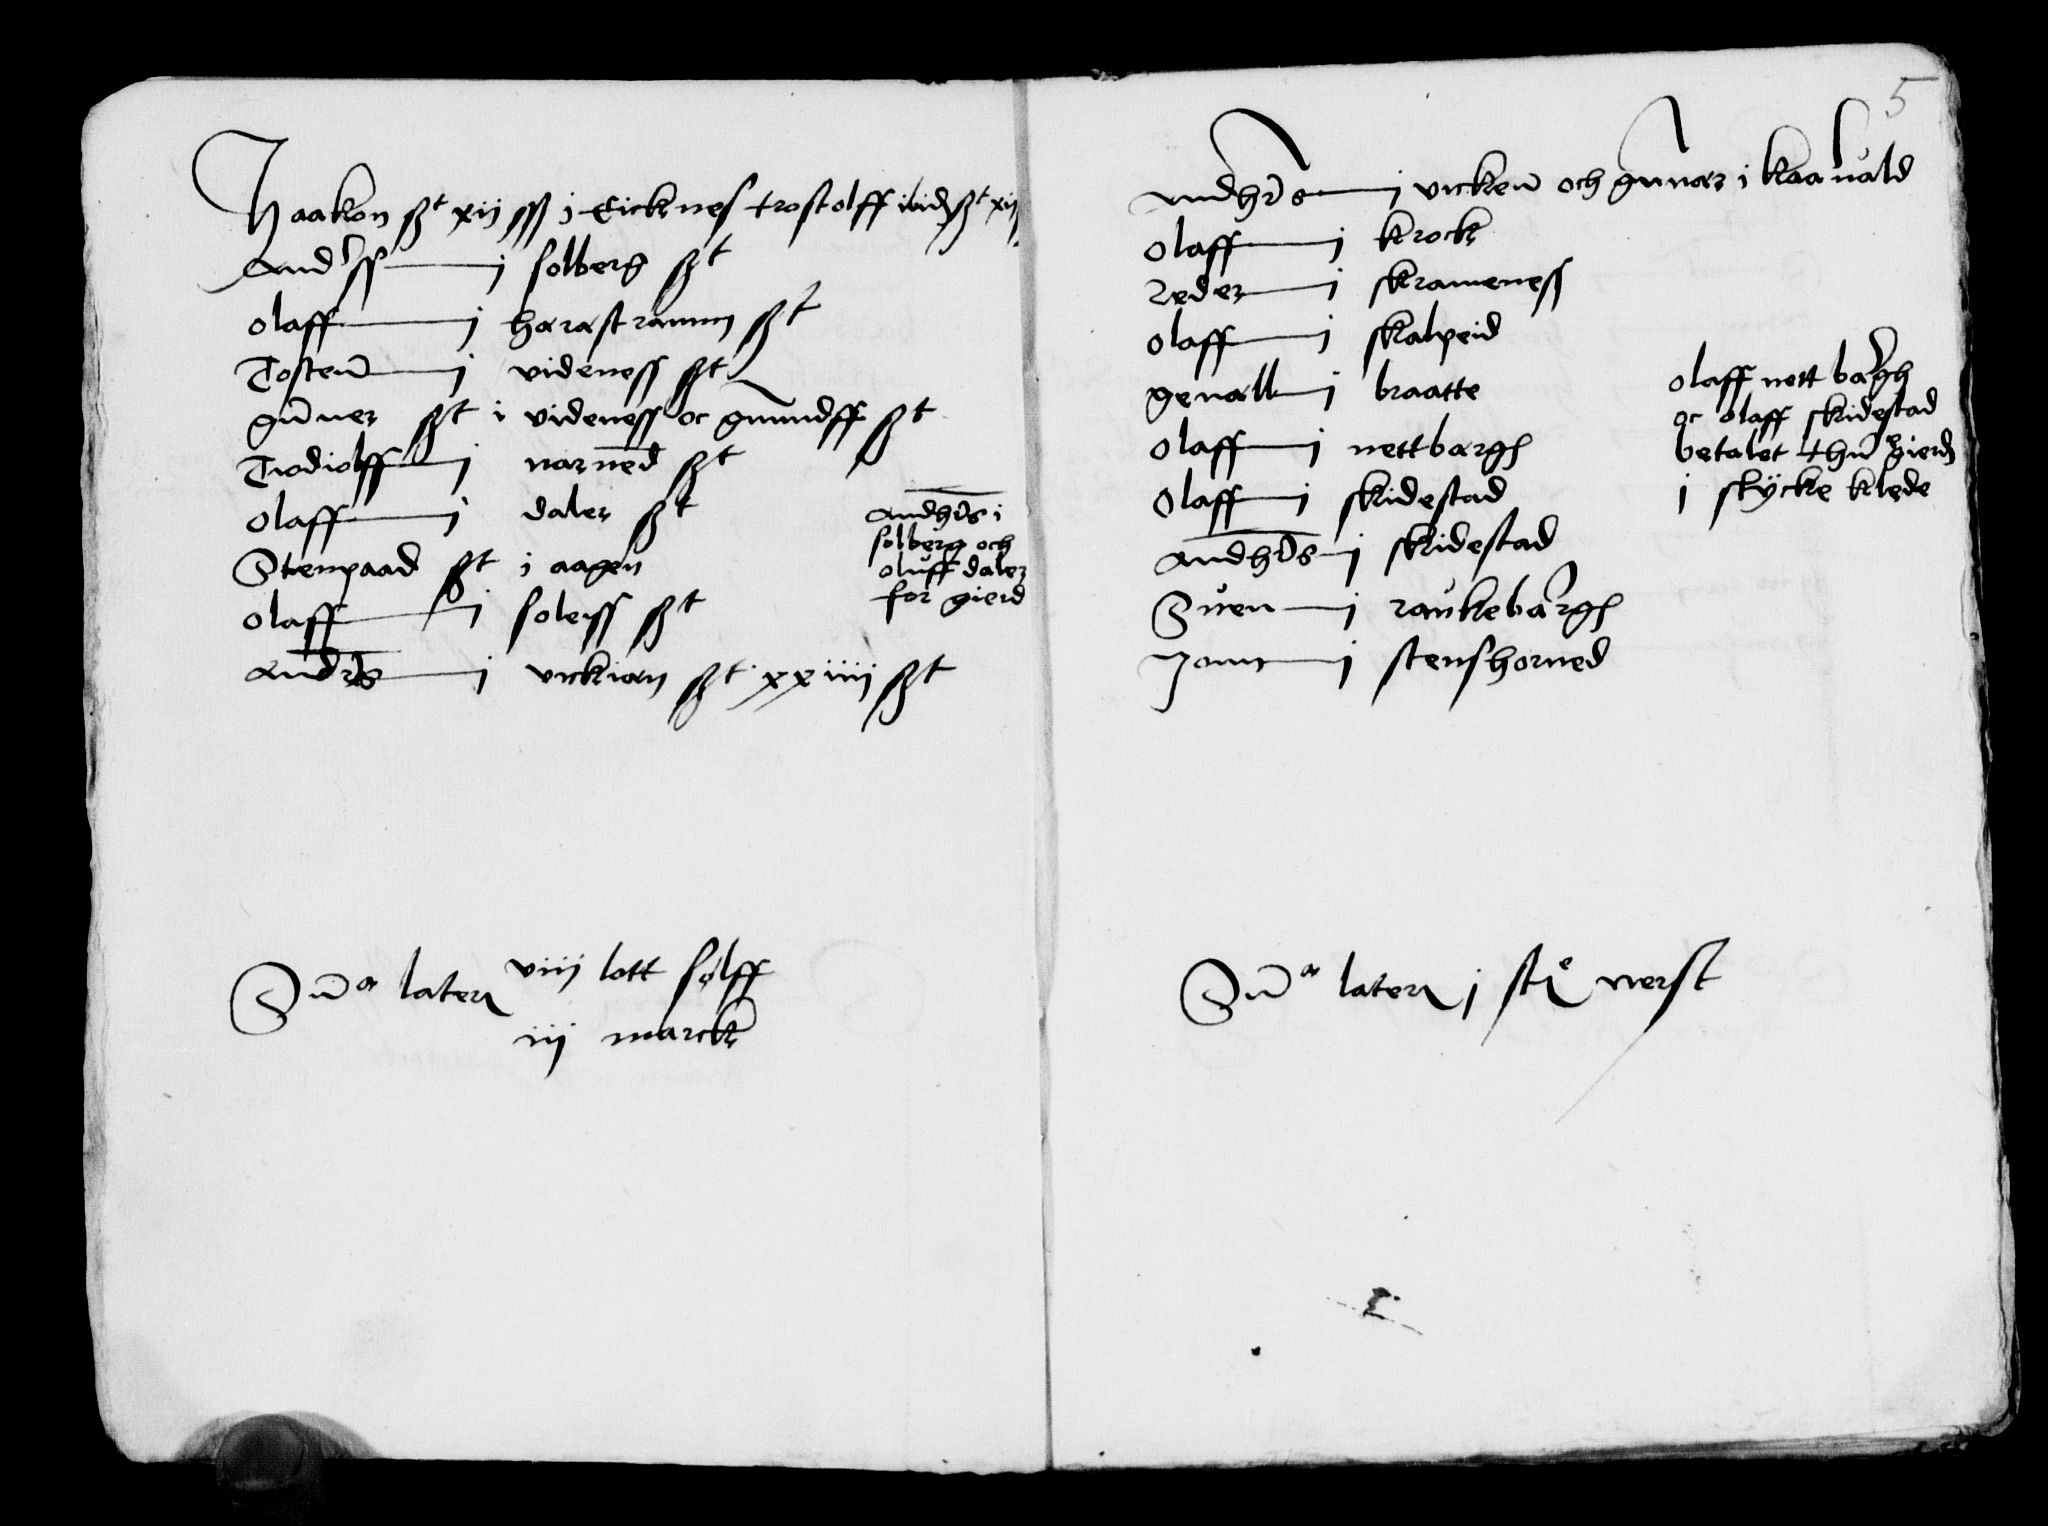 Haakon st xij sss j Eicknes trostolff ibid st xij
Andrss j solberg st
olaff j harastramm st
Tosten j videness st
gunner st i videness oc gnundff st
Tiodiolff j narned st
olaff j daler st
Stenpaad st i aagen
olaff j soleiss st
Andrs j vickian st xxiiij st
Andhrs i
solberg och
oluff daler
for gierd
Suma lateris viiij lott sølff
iij marck
5
Andhrs j vicken och gunnar i kaauald
olaff j krock
Peder j skrameness
olaff j skalpeid
genall j braatte
olaff j nettbargh
Olaff j skidestad
Andhrs j skidestad
Suen j raukebargh
Jonn j stenshorned
olaff nett bargh
oc olaff skidestad
betalet thn gierd
j stÿcke klede
Suma lateris j ste verst